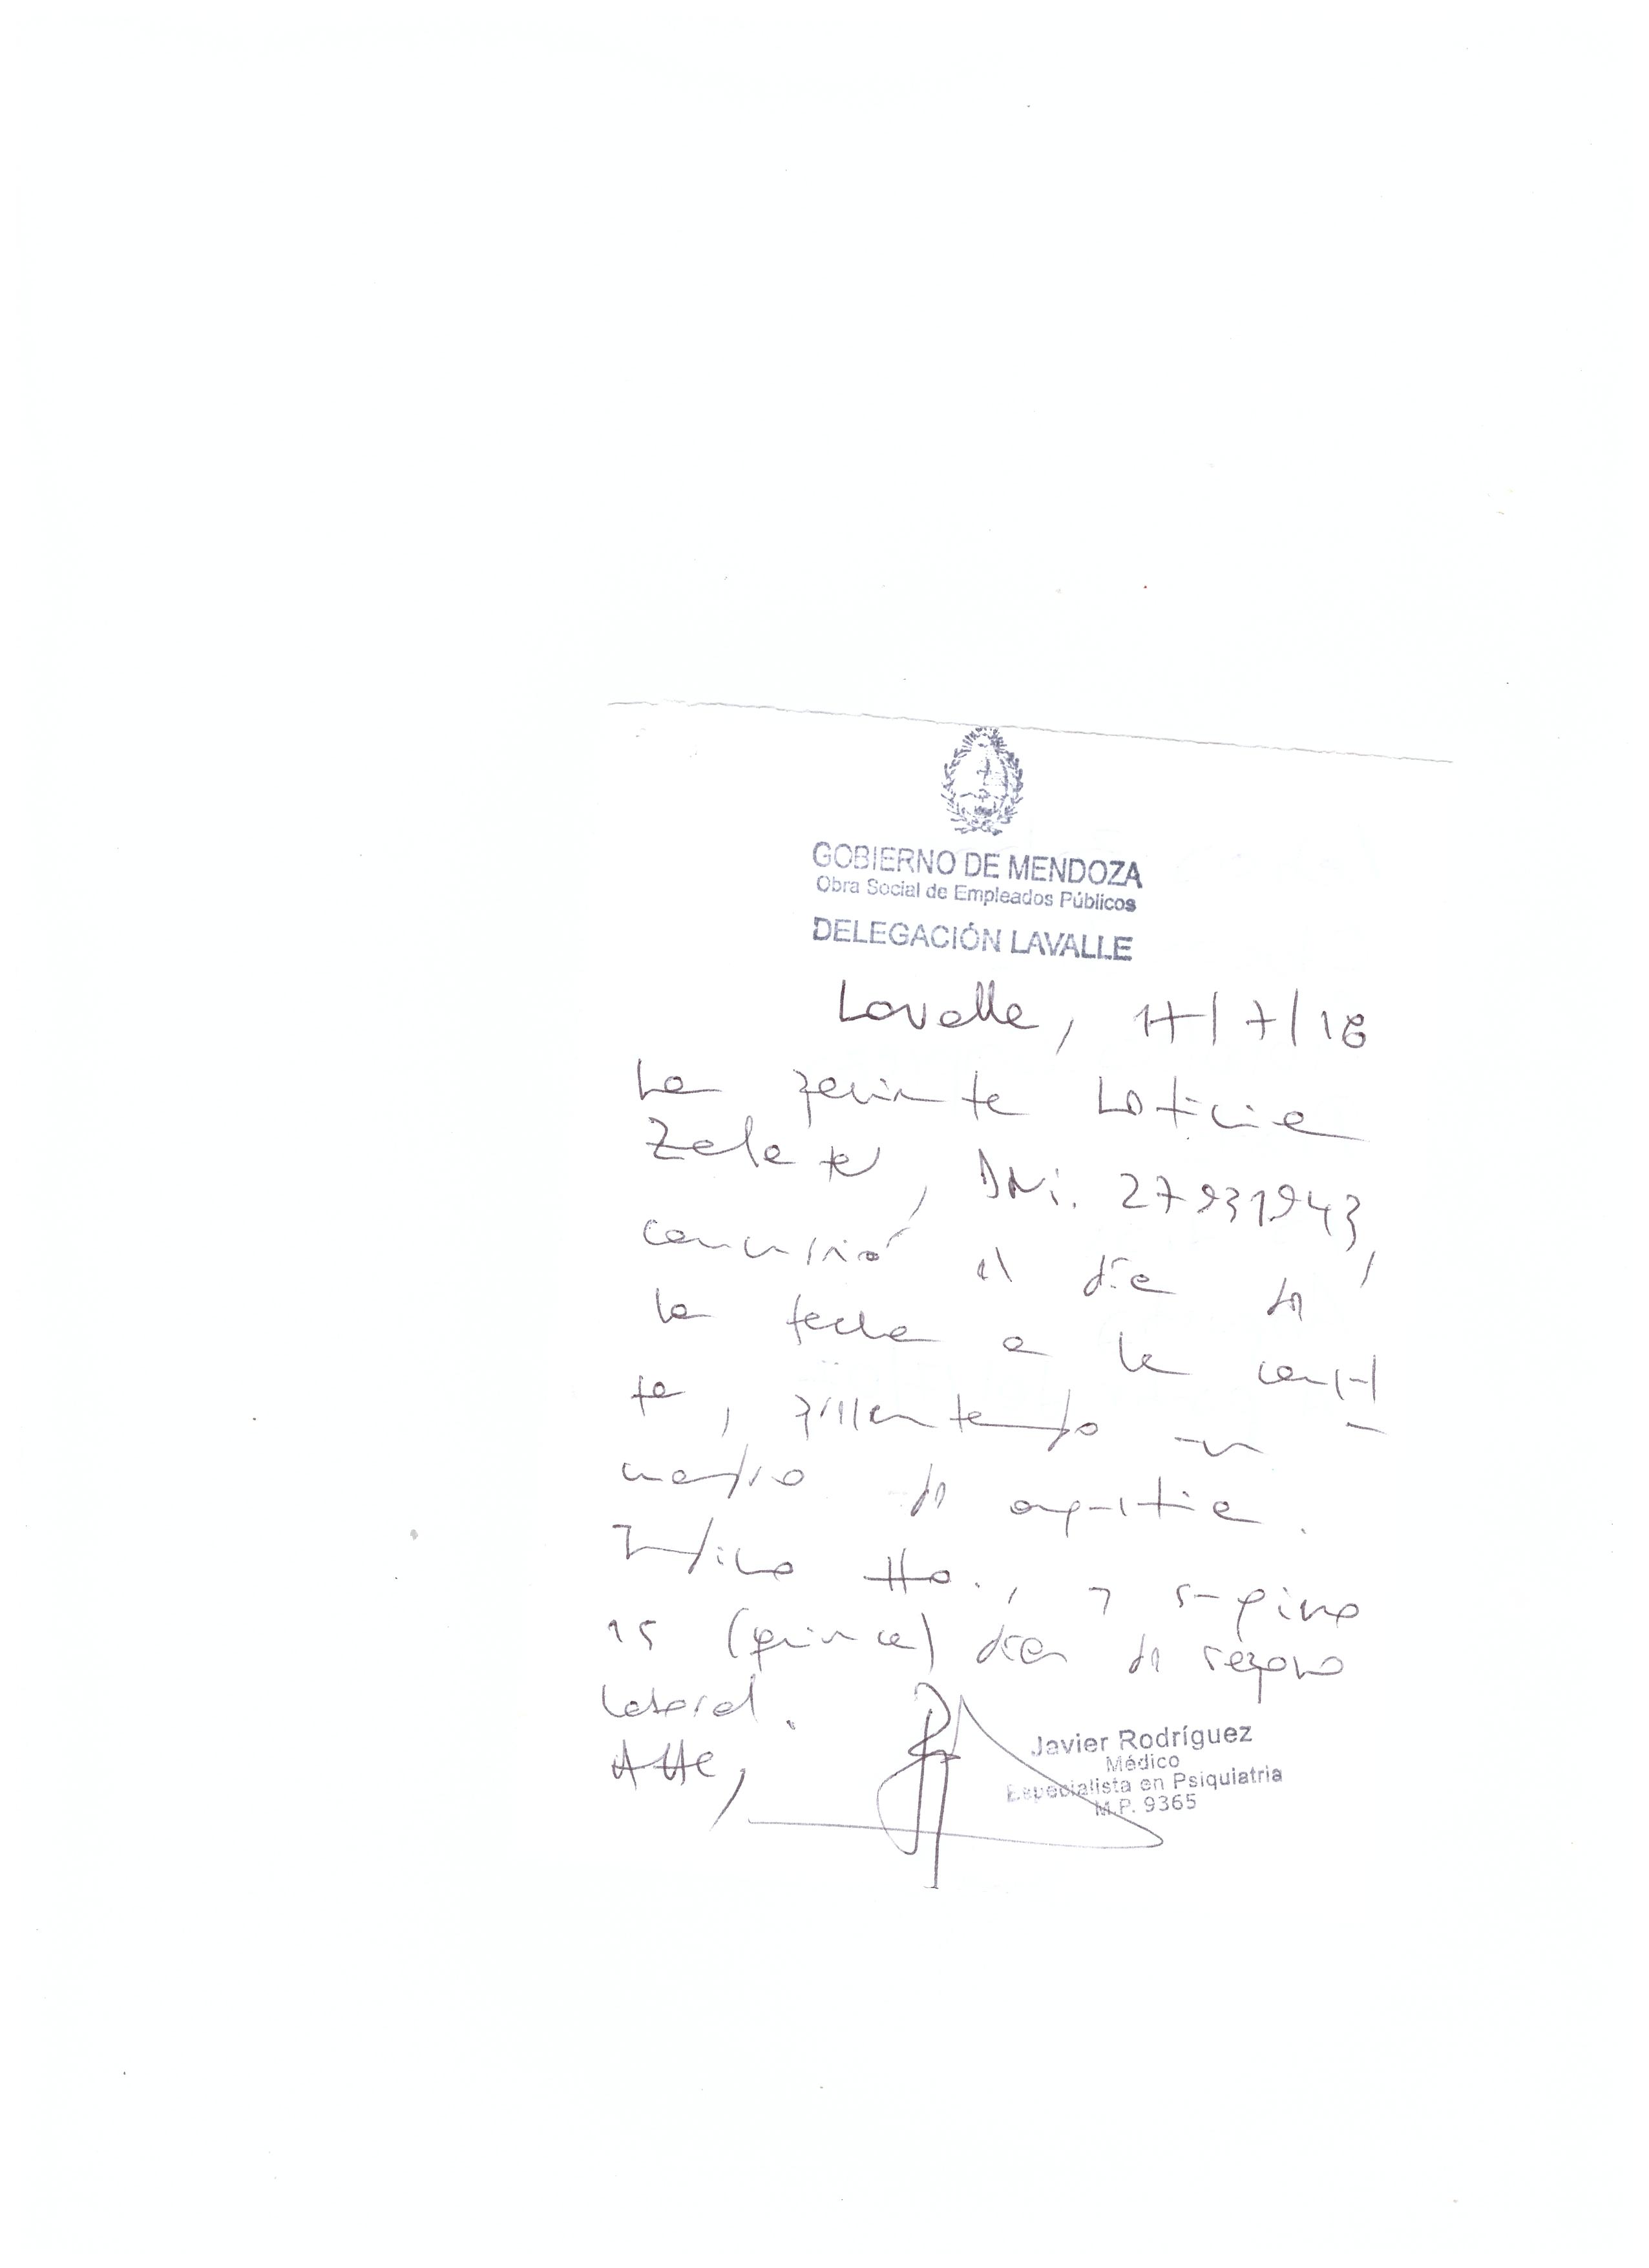 GOBIERNO DE MENDOZA
Obra Social de Empleados Públicos
DELEGACIÓN LAVALLE
Lavalle, 17/7/18
La paciente Leticia
DNi. 27931943,
concurrió el día de
la fecha a la consul
ta, presentando un
cuadro de angustia.
Indico tto., y sugiero
15 (quince) días de reposo
laboral.
Atte,
Javier Rodríguez
Médico
Especialista en Psiquiatria
M.P. 9365